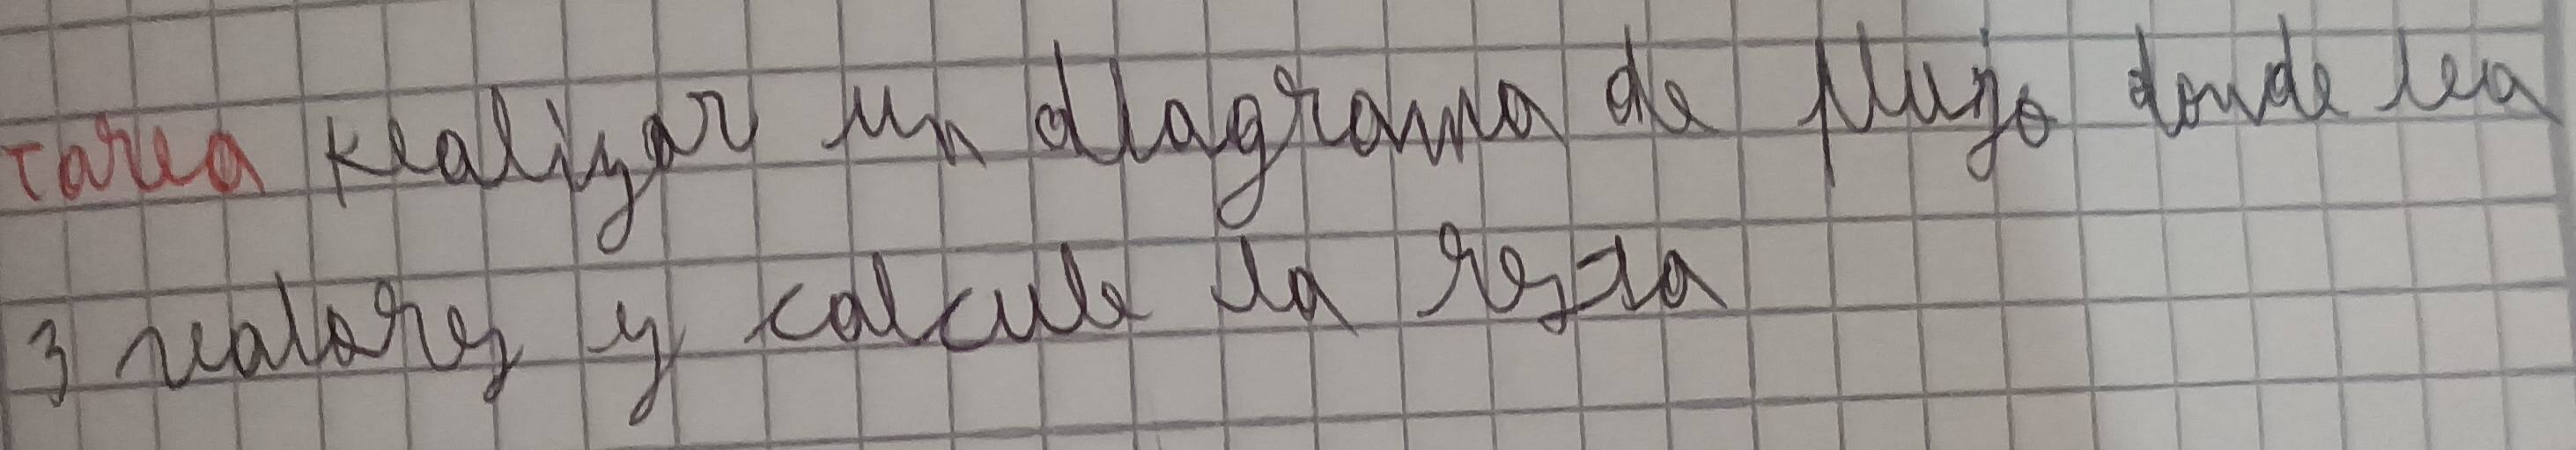 Tarea Realizar un diagrama de flujo donde lea
3 valores y calcule la resta